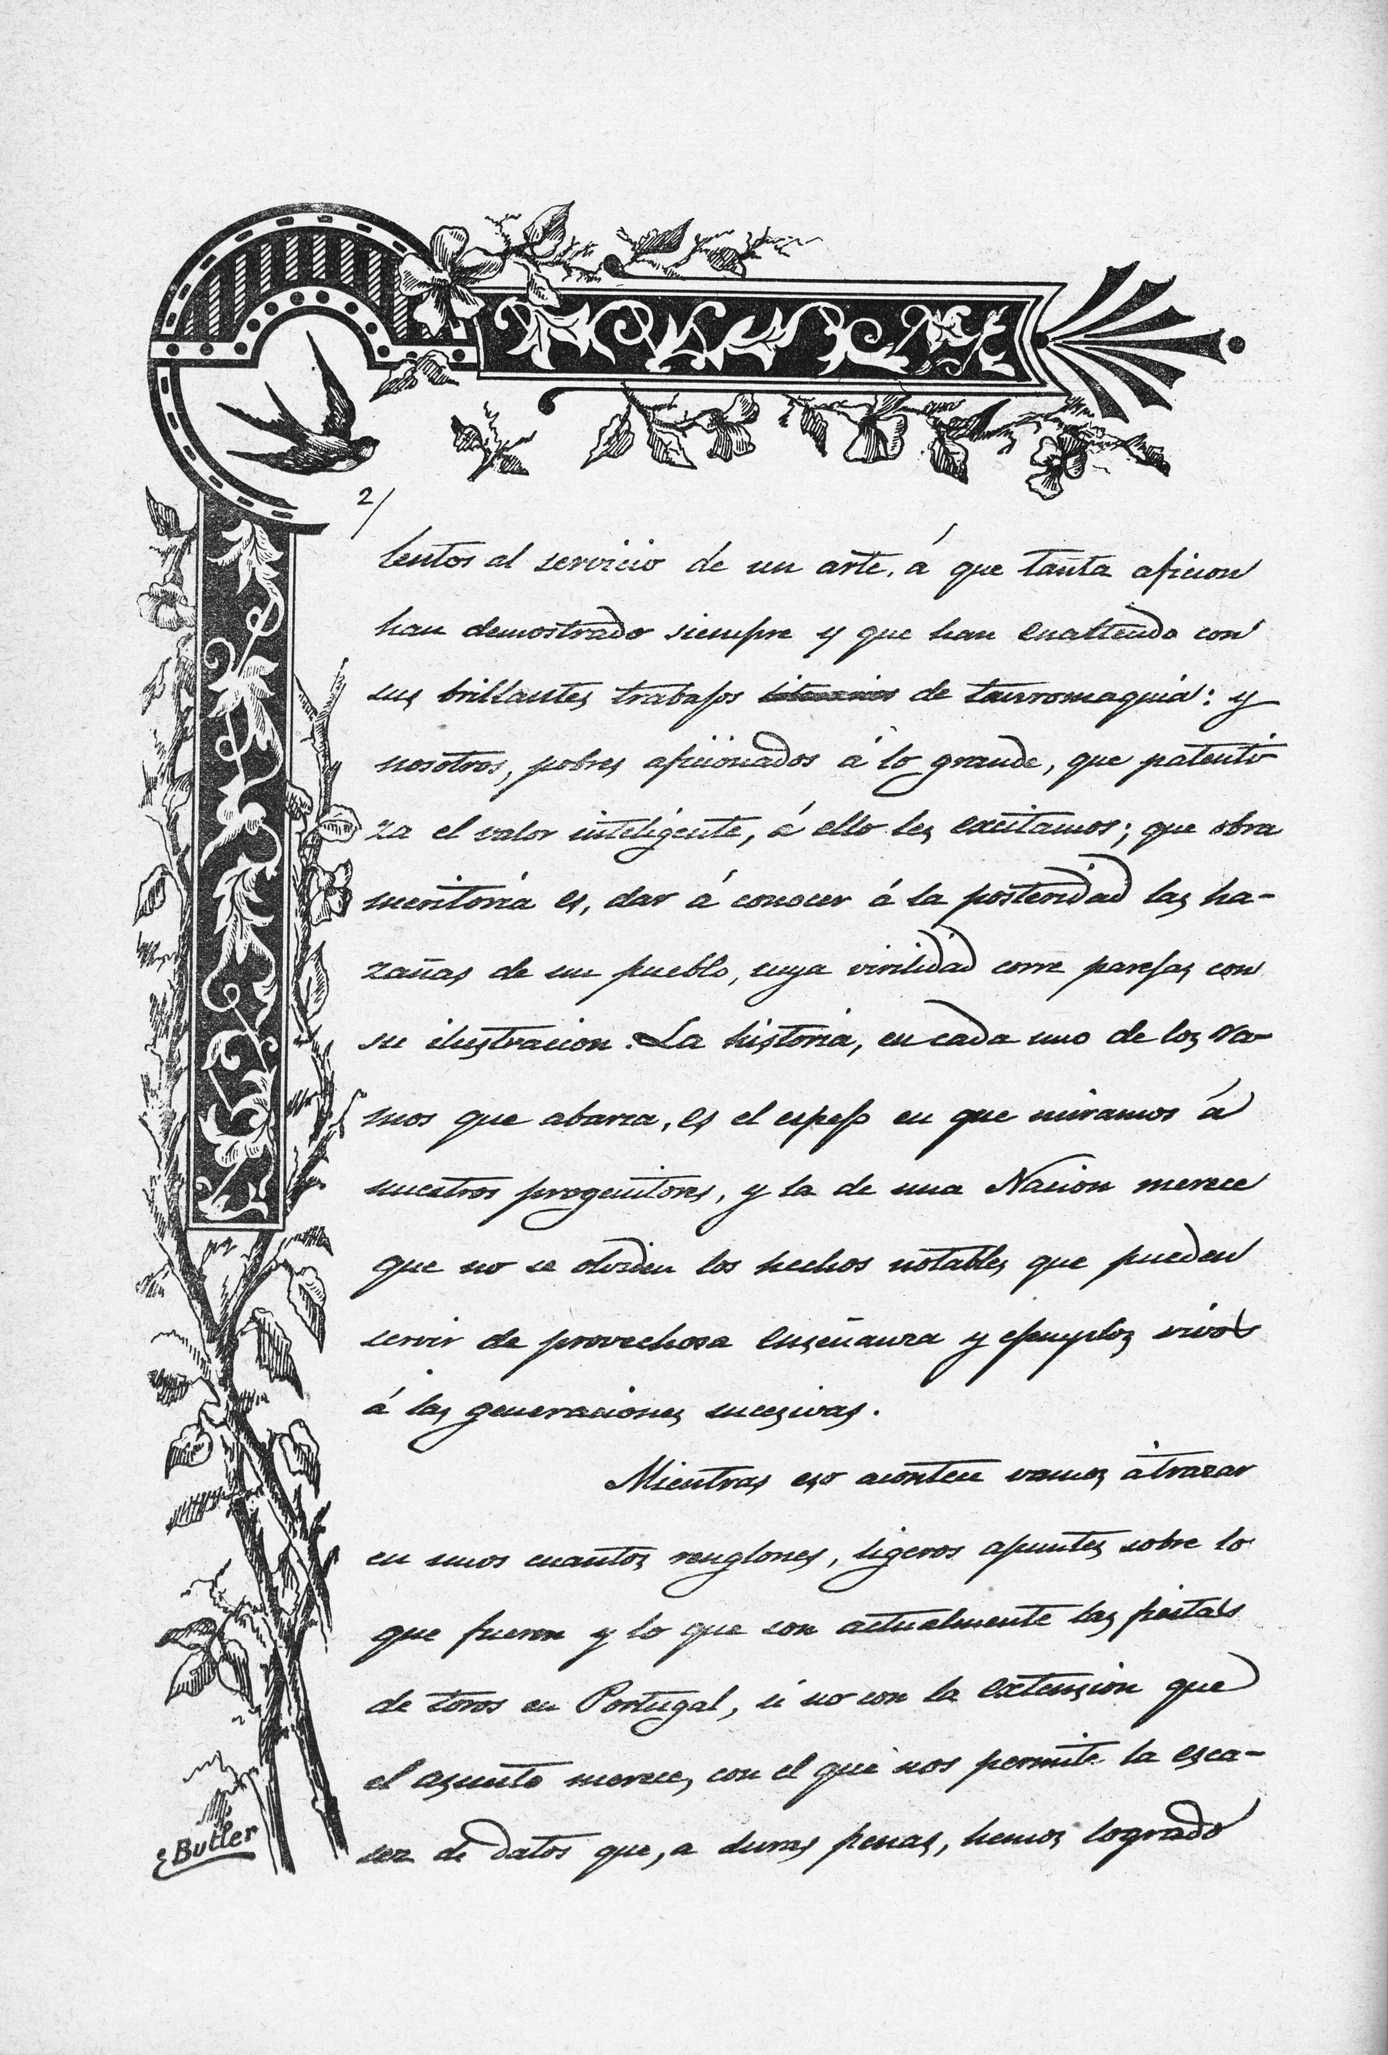 2/
lentos al servicio de un arte, á que tanta aficion
han demostrado siempre y que han enaltecido con
sus brillantes trabajos literarios de tauromaquia: y
nosotros, pobres aficionados á lo grande, que patenti
za el valor inteligente, á ello les excitamos; que obra
meritoria es, dar á conocer á la posteridad las ha-
zañas de un pueblo, cuya virilidad corre parejas con
su ilustracion. La historia, en cada uno de los ra-
mos que abarza, es el espejo en que miramos á
nuestros progenitores, y la de una Nacion merece
que no se olviden los hechos notables que pueden
servir de provechosa enseñanza y ejemplos vivos
á las generaciones sucesivas.
Mientras eso acontece vamos á trazar
en unos cuantos renglones, ligeros apuntes sobre lo
que fueron y lo que son actualmente las fiestas
de toros en Portugal, si no con la extension que
el asunto merece, con el que nos permite la esca-
sez de datos que, a duras penas, hemos logrado
E Butler